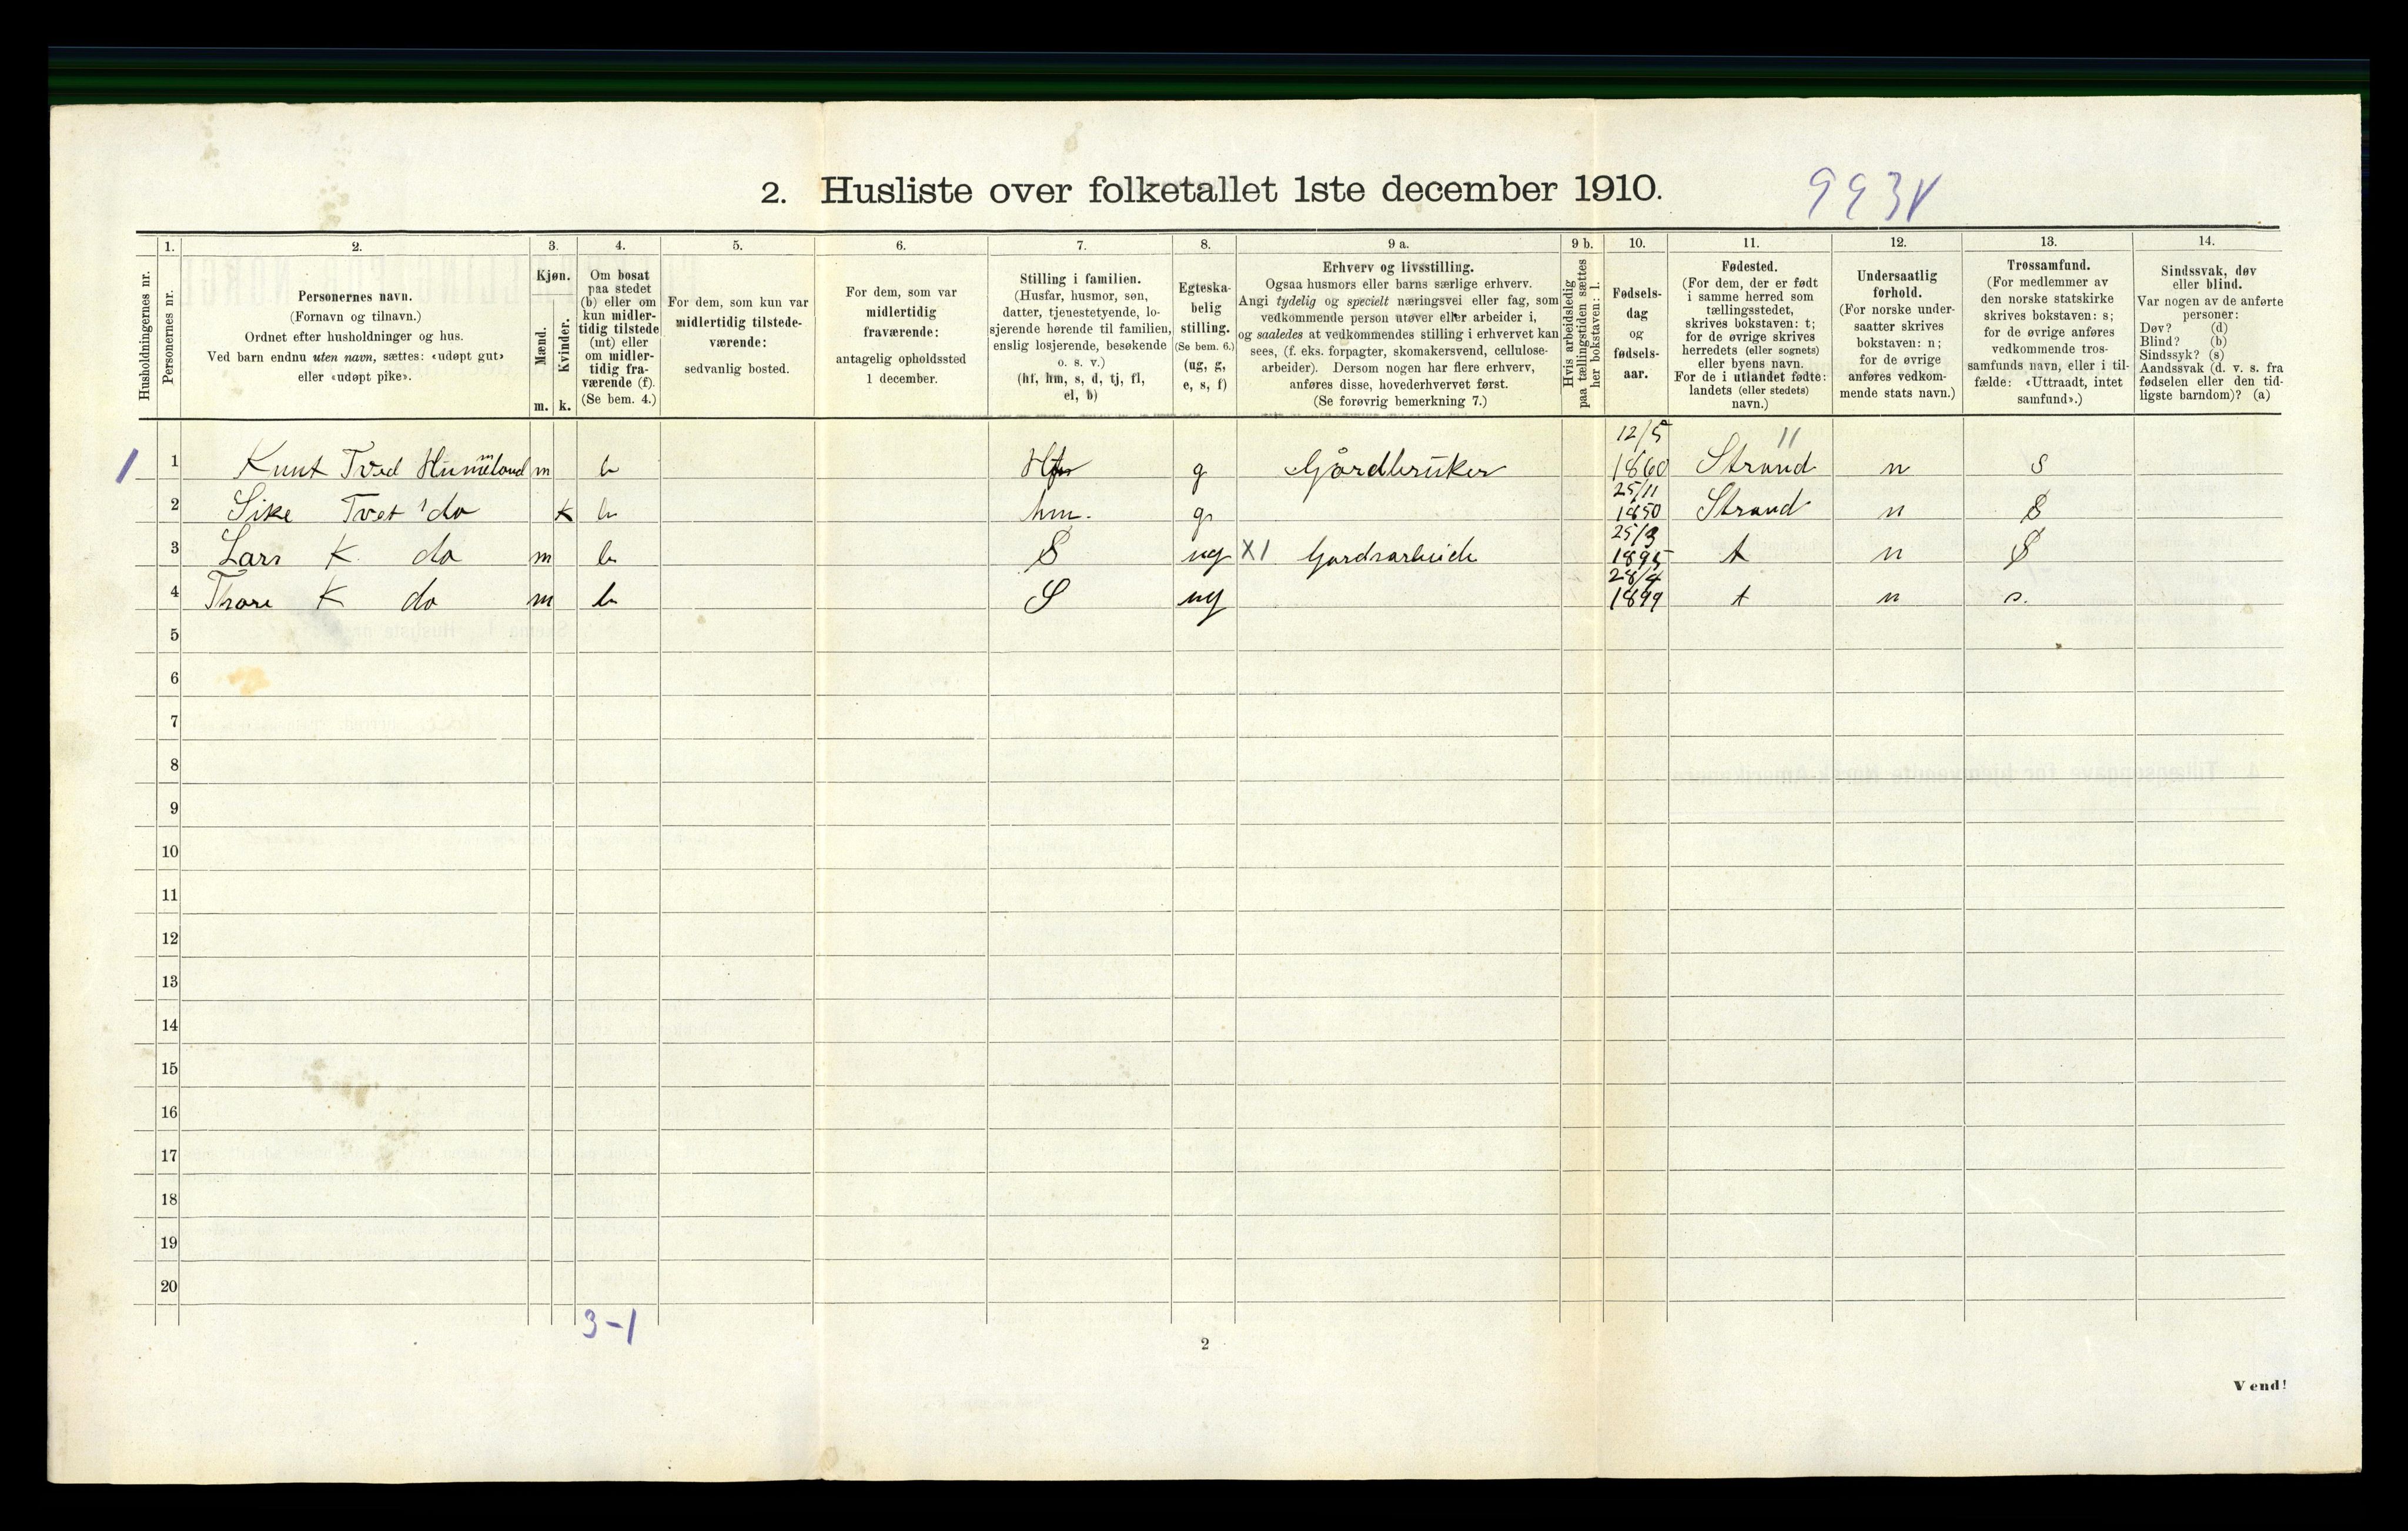 2. Husliste over folketallet 1ste december 1910.
993V
Husholdningernes nr.
1.
Personernes nr.
2.
Personernes navn.
(Fornavn og tilnavn.)
Ordnet efter husholdninger og hus.
Ved barn endnu uten navn, sættes: «udøpt gut»
eller «udøpt pike».
3.
Kjøn.
Mænd.
m.
Kvinder.
k.
4.
Om bosat
paa stedet
(b) eller om
kun midler-
tidig tilstede
(mt) eller
om midler-
tidig fra-
værende (f).
(Se bem. 4.)
5.
For dem, som kun var
midlertidig tilstede-
værende:
sedvanlig bosted.
6.
For dem, som var
midlertidig
fraværende:
antagelig opholdssted
1 december.
7.
Stilling i familien.
(Husfar, husmor, søn,
datter, tjenestetyende, lo-
sjerende hørende til familien,
enslig losjerende, besøkende
o. s. v.)
(hf, hm, s, d, tj, fl,
el, b)
8.
Egteska-
belig
stilling.
(Se bem. 6.)
(ug, g,
e, s, f)
9 a.
Erhverv og livsstilling.
Ogsaa husmors eller barns særlige erhverv.
Angi tydelig og specielt næringsvei eller fag, som
vedkommende person utøver eller arbeider i,
og saaledes at vedkommendes stilling i erhvervet kan
sees, (f. eks. forpagter, skomakersvend, cellulose-
arbeider). Dersom nogen har flere erhverv,
anføres disse, hovederhvervet først.
(Se forøvrig bemerkning 7.)
9 b.
Hvis arbeidsledig
paa tællingstiden sættes
her bokstaven: l.
10.
Fødsels-
dag
og
fødsels-
aar.
11.
Fødested.
(For dem, der er født
i samme herred som
tællingsstedet,
skrives bokstaven: t;
for de øvrige skrives
herredets (eller sognets)
eller byens navn.
For de i utlandet fødte:
landets (eller stedets)
navn.)
12.
Undersaatlig
forhold.
(For norske under-
saatter skrives
bokstaven: n;
for de øvrige
anføres vedkom-
mende stats navn.)
13.
Trossamfund.
(For medlemmer av
den norske statskirke
skrives bokstaven: s;
for de øvrige anføres
vedkommende tros-
samfunds navn, eller i til-
fælde: «Uttraadt, intet
samfund».)
14.
Sindssvak, døv
eller blind.
Var nogen av de anførte
personer:
Døv? (d)
Blind? (b)
Sindssyk? (s)
Aandssvak (d. v. s. fra
fødselen eller den tid-
ligste barndom)? (a)
1 1 Knut Tved m b g Gårdbruker 12/5 1860 Strand 11 n s
2 Sike Tvet do k b hm. g 25/11 1850 Strand n S
3 Lars K do m b S ug X1 Gardsarbeide 25/3 1895 t n S
4 Thore K do m b S ug 28/4 1899 t n s.
5
6
7
8
9
10
11
12
13
14
15
16
17
18
19
20
3-1
2
Vend!